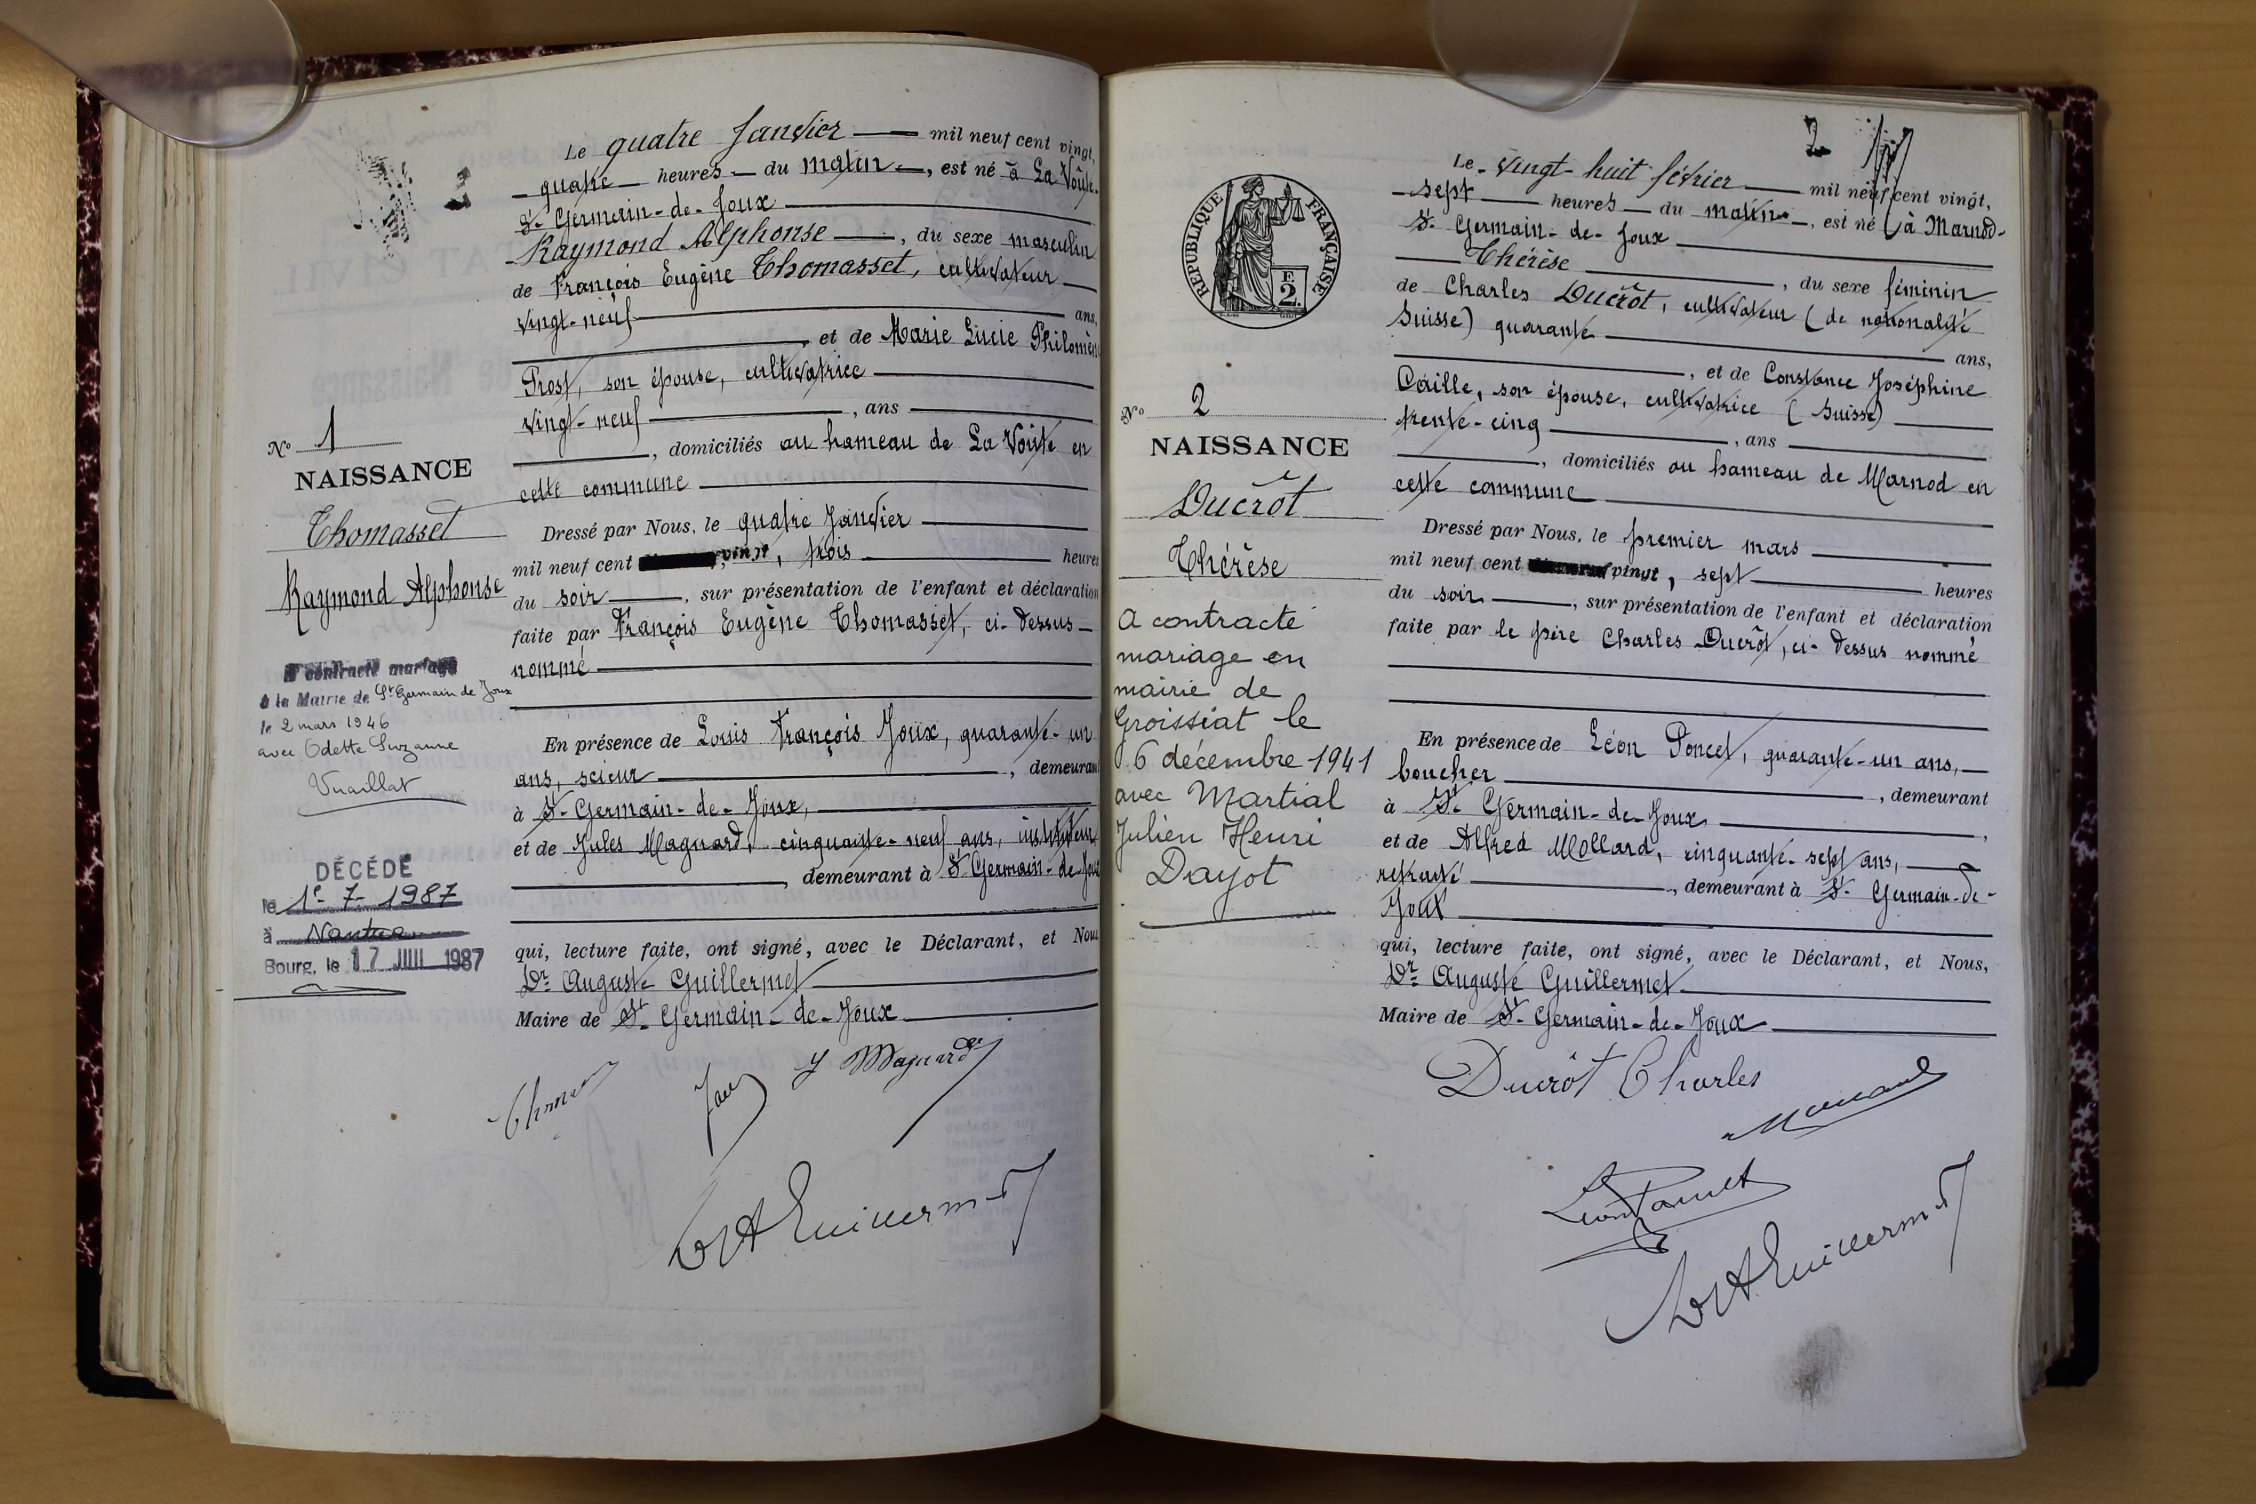 1
Le quatre Janvier mil neuf cent vingt,
quatre heures du matin, est né à La Voûte-
St Germain-de-Joux
Raymond Alphonse, du sexe masculin
de François Eugène Thomasset, cultivateur
vingt-neuf ans,
et de Marie Lucie Philomène
Prost, son épouse, cultivatrice
vingt-neuf, ans
, domiciliés au hameau de La Voûte en
cette commune
Dressé par Nous, le quatre Janvier
mil neuf cent vingt, trois heures
du soir, sur présentation de l'enfant et déclaration
faite par François Eugène Thomasset, ci-dessus-
nommé
En présence de Louis François Joux, quarante-un
ans, scieur, demeurant
à St-Germain-de-Joux,
et de Jules Magnard, cinquante-neuf ans, instituteur
, demeurant à St Germain-de-Joux
qui, lecture faite, ont signé, avec le Déclarant, et Nous
Dr Auguste Guillermet
Maire de St-Germain-de-Joux
J Magnard
Dr A Guillermet
No 1
NAISSANCE
Thomasset
Raymond Alphonse
A contracté mariage
à la Mairie de St Germain de Joux
le 2 mars 1946
avec Odette Suzanne
Vuaillat
DÉCÉDÉ
le 1e-7-1987
à Nantua
Bourg, le 17 JUIL 1987
2
RÉPUBLIQUE FRANÇAISE
E
2.
Le vingt-huit février mil neuf cent vingt,
sept heures du matin, est né à Marnod-
St Germain-de-Joux
Thérèse, du sexe féminin
de Charles Ducrôt, cultivateur (de nationalité
Suisse) quarante ans,
, et de Constance Joséphine
Caille, son épouse, cultivatrice (Suisse)
trente-cinq, ans
, domiciliés au hameau de Marnod en
cette commune
Dressé par Nous, le premier mars
mil neuf cent vingt, sept heures
du soir, sur présentation de l'enfant et déclaration
faite par le père Charles Ducrôt, ci-dessus nommé
En présence de Léon Poncet, quarante-un ans,
boucher, demeurant
à St Germain-de-Joux,
et de Alfred Mollard, cinquante-sept ans,
retraité, demeurant à St-Germain-de-
Joux
qui, lecture faite, ont signé, avec le Déclarant, et Nous,
Dr Auguste Guillermet
Maire de St-Germain-de-Joux
Ducrôt Charles
Léon Poncet
Dr A Guillermet
No 2
NAISSANCE
Ducrôt
Thérèse
A contracté
mariage en
mairie de
Groissiat le
6 décembre 1941
avec Martial
Julien Henri
Dayot